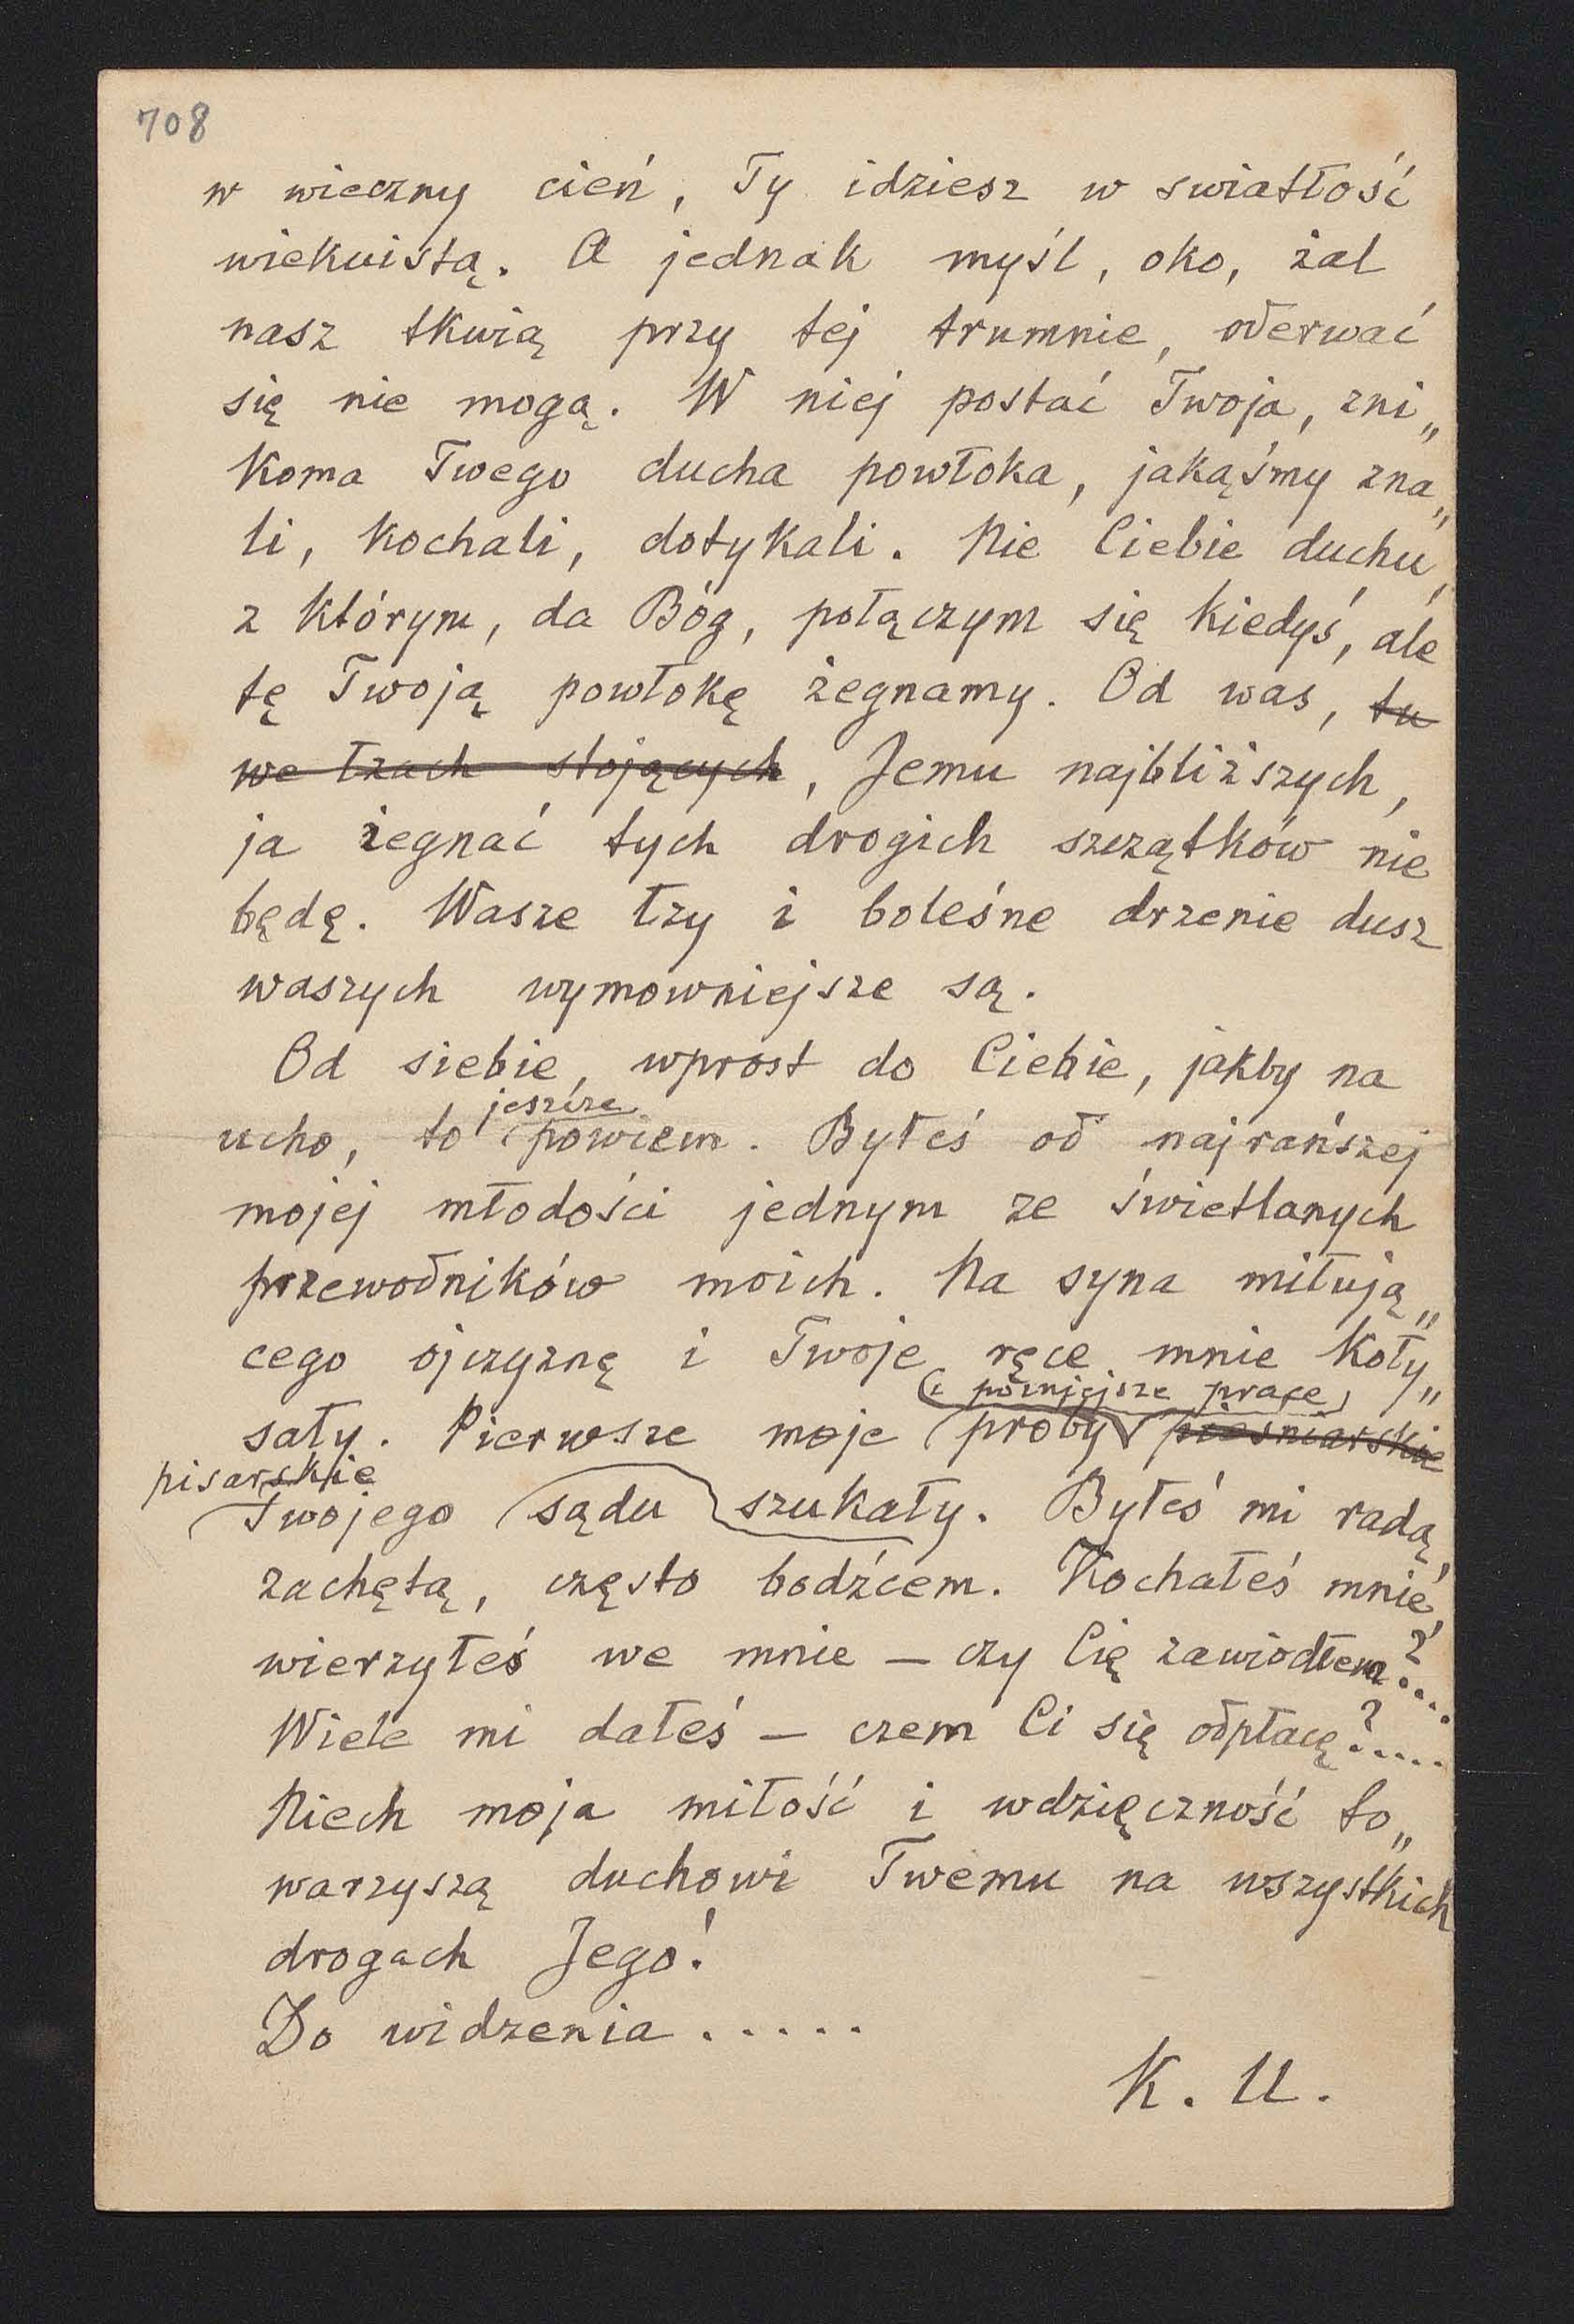 708
w wieczny cień, Ty idziesz w swiatłość
wiekuistą. A jednak myśl, oko, żal
nasz tkwią przy tej trumnie, oderwać
się nie mogą. W niej postać Twoja, zni„
koma Twego ducha powłoka, jakąśmy zna„
li, kochali, dotykali. Nie Ciebie duchu,
z którym, da Bóg, połączym się kiedyś, ale
tę Twoją powłokę żegnamy. Od was, tu
we łzach stojących, Jemu najbliższych,
ja żegnać tych drogich szczątków nie
będę. Wasze łzy i boleśne drżenie dusz
waszych wymowniejsze są.
Od siebie, wprost do Ciebie, jakby na
jeszcze
ucho, to powiem. Byłeś od najrańszej
mojej młodości jednym ze świetlanych
przewodników moich. Na syna miłują„
cego ojczyznę i Twoje ręce mnie koły„
(i późniejsze prace)
sały. Pierwsze moje próby pieśniarskie
pisarskie
Twojego sądu szukały. Byłeś mi radą,
zachętą, często bodźcem. Kochałeś mnie,
wierzyłeś we mnie – czy Cię zawiodłem?....
Wiele mi dałeś – czem Ci się odpłacę?.....
Niech moja miłość i wdzięczność to„
warzyszą duchowi Twemu na wszystkich
drogach Jego!
Do widzenia.....
K. U.